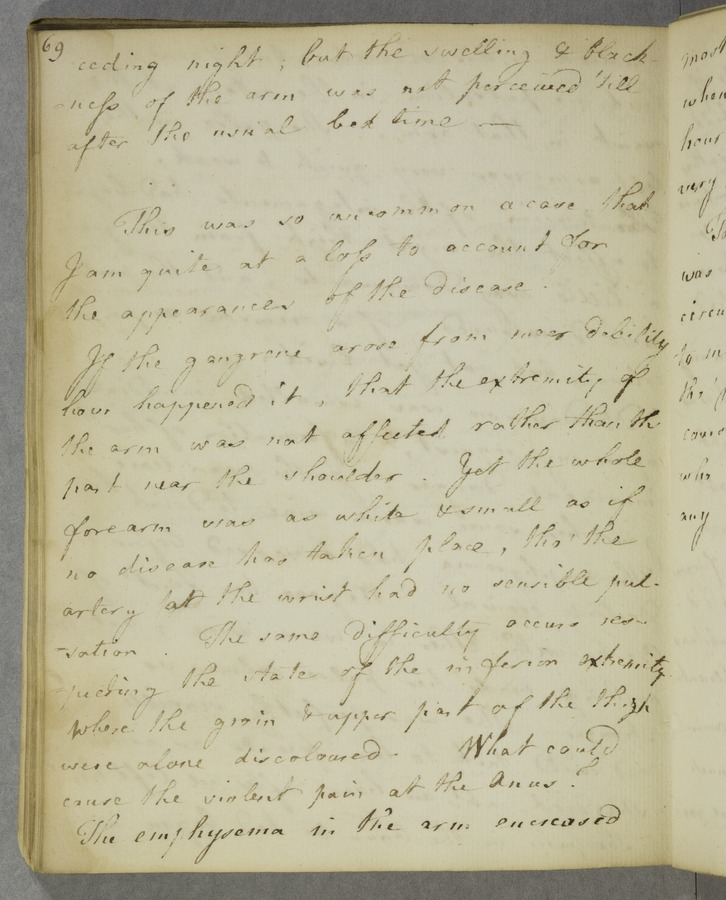 69
ceeding night; but the swelling & black-
-ness of the arm was not perceived 'till
after the usual bed time —
This was so uncommon a case that
I am quite at a loss to account for
the appearances of the disease.
If the gangrene arose from meer debility
how happened it, that the extremity of
the arm was not affected rather than the
part near the shoulder. Yet the whole
forearm was as white & small as if
no disease had taken place, tho' the
artery at the wrist had no sensible pul-
-sation. The same difficulty occurs res-
-pecting the state of the inferior extremity
where the groin & upper part of the thigh
were alone discoloured. What could
cause the violent pain at the Anus?
The emphysema in the arm encreased
most
when
hour
very
was
circu
to m
the
came
who
any